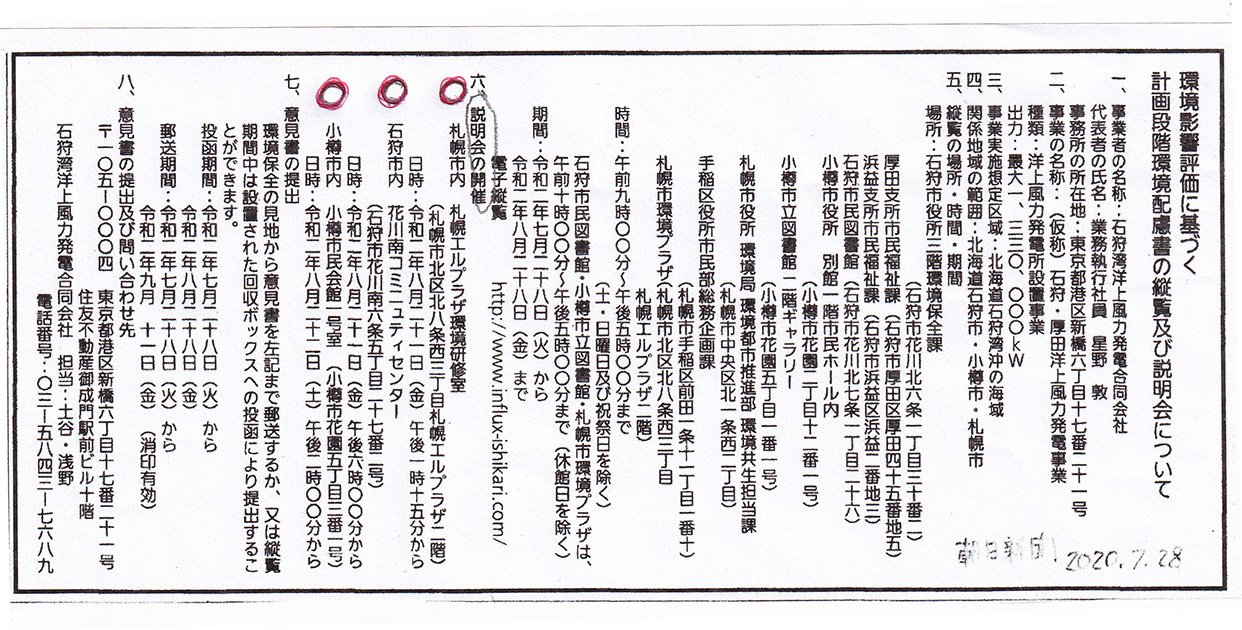 環境影響評価に基づく
計画段階環境配慮書の縦覧及び説明会について
一、事業者の名称：石狩湾洋上風力発電合同会社
代表者の氏名：業務執行社員 星野 敦
事務所の所在地：東京都港区新橋六丁目十七番二十一号
二、事業の名称：（仮称）石狩・厚田洋上風力発電事業
種類：洋上風力発電所設置事業
出力：最大一、三三〇、〇〇〇kW
三、事業実施想定区域：北海道石狩湾沖の海域
四、関係地域の範囲：北海道石狩市・小樽市・札幌市
五、縦覧の場所・時間・期間
場所：石狩市役所三階環境保全課
（石狩市花川北六条一丁目三十番二）
厚田支所市民福祉課（石狩市厚田区厚田四十五番地五）
浜益支所市民福祉課（石狩市浜益区浜益二番地三）
石狩市民図書館（石狩市花川北七条一丁目二十六）
小樽市役所 別館一階市民ホール内
（小樽市花園二丁目十二番一号）
小樽市立図書館 二階ギャラリー
（小樽市花園五丁目一番一号）
札幌市役所 環境局 環境都市推進部 環境共生担当課
（札幌市中央区北一条西二丁目）
手稲区役所市民部総務企画課
（札幌市手稲区前田一条十一丁目一番十）
札幌市環境プラザ（札幌市北区北八条西三丁目
札幌エルプラザ二階）
時間：午前九時〇〇分から午後五時〇〇分まで
（土・日曜日及び祝祭日を除く）
石狩市民図書館・小樽市立図書館・札幌市環境プラザは、
午前十時〇〇分～午後五時〇〇分まで（休館日を除く）
期間：令和二年七月二十八日（火）から
令和二年八月二十八日（金）まで
電子縦覧 http://www.influx-ishikari.com/
六、説明会の開催
札幌市内 札幌エルプラザ環境研修室
（札幌市北区北八条西三丁目札幌エルプラザ二階）
日時：令和二年八月二十一日（金）午後一時十五分から
石狩市内 花川南コミュニティセンター
（石狩市花川南六条五丁目二十七番二号）
日時：令和二年八月二十一日（金）午後六時〇〇分から
小樽市内 小樽市民会館一号室（小樽市花園五丁目三番一号）
日時：令和二年八月二十二日（土）午後二時〇〇分から
七、意見書の提出
環境保全の見地から意見書を左記まで郵送するか、又は縦覧
期間中は設置された回収ボックスへの投函により提出するこ
とができます。
投函期間：令和二年七月二十八日（火）から
令和二年八月二十八日（金）
郵送期間：令和二年七月二十八日（火）から
令和二年九月 十一日（金）（消印有効）
八、意見書の提出及び問い合わせ先
〒一〇五ー〇〇〇四 東京都港区新橋六丁目十七番二十一号
住友不動産御成門駅前ビル十階
石狩湾洋上風力発電合同会社 担当：土谷・浅野
電話番号：〇三ー五八四三ー七六八九
朝日新聞 2020.7.28